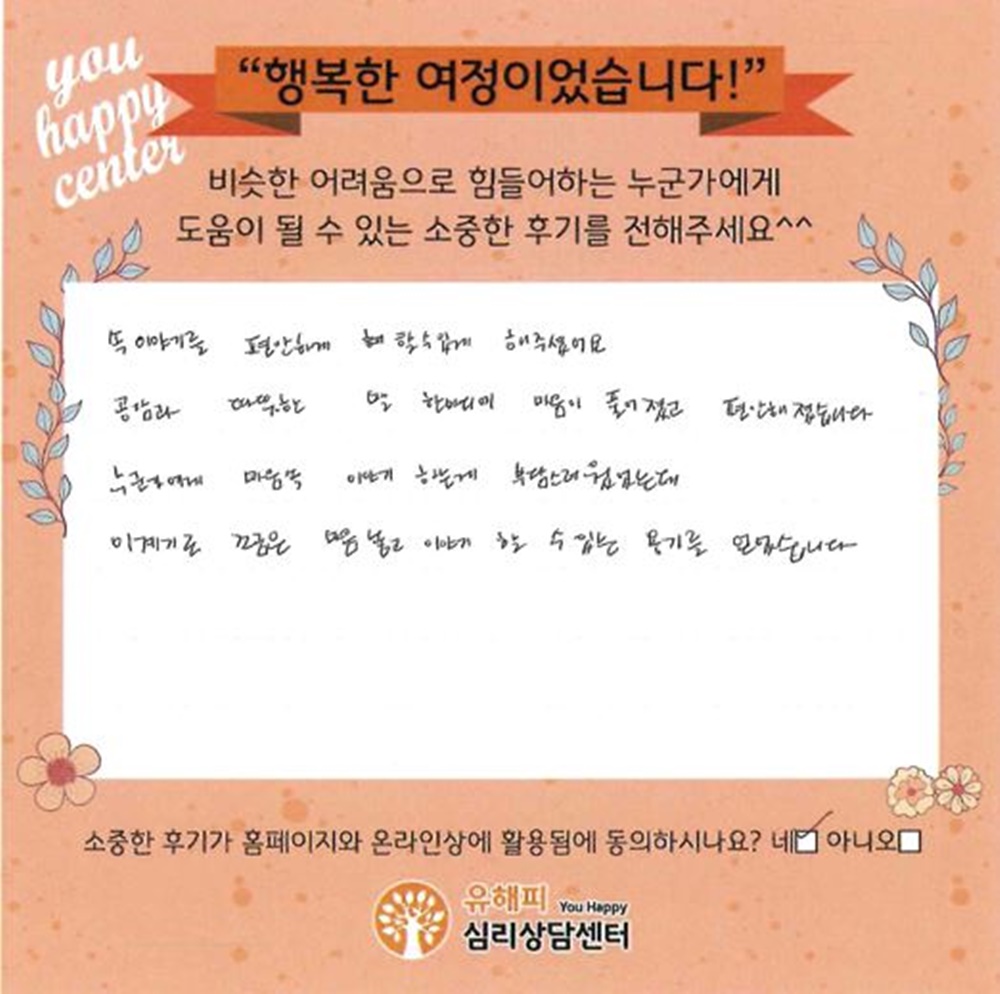 you
happy
center
“행복한 여정이었습니다!”
비슷한 어려움으로 힘들어하는 누군가에게
도움이 될 수 있는 소중한 후기를 전해주세요^^
속 이야기를 편안하게 할 수 있게 해주셨어요
공감과 따뜻한 말 한마디에 마음이 풀어졌고 편안해졌습니다
누군가에게 마음속 이야기 하는게 부담스러웠었는데
이계기로 조금은 이야기 할 수 있는 용기를 얻었습니다
소중한 후기가 홈페이지와 온라인상에 활용됨에 동의하시나요? 네 아니오
유해피 You Happy
심리상담센터